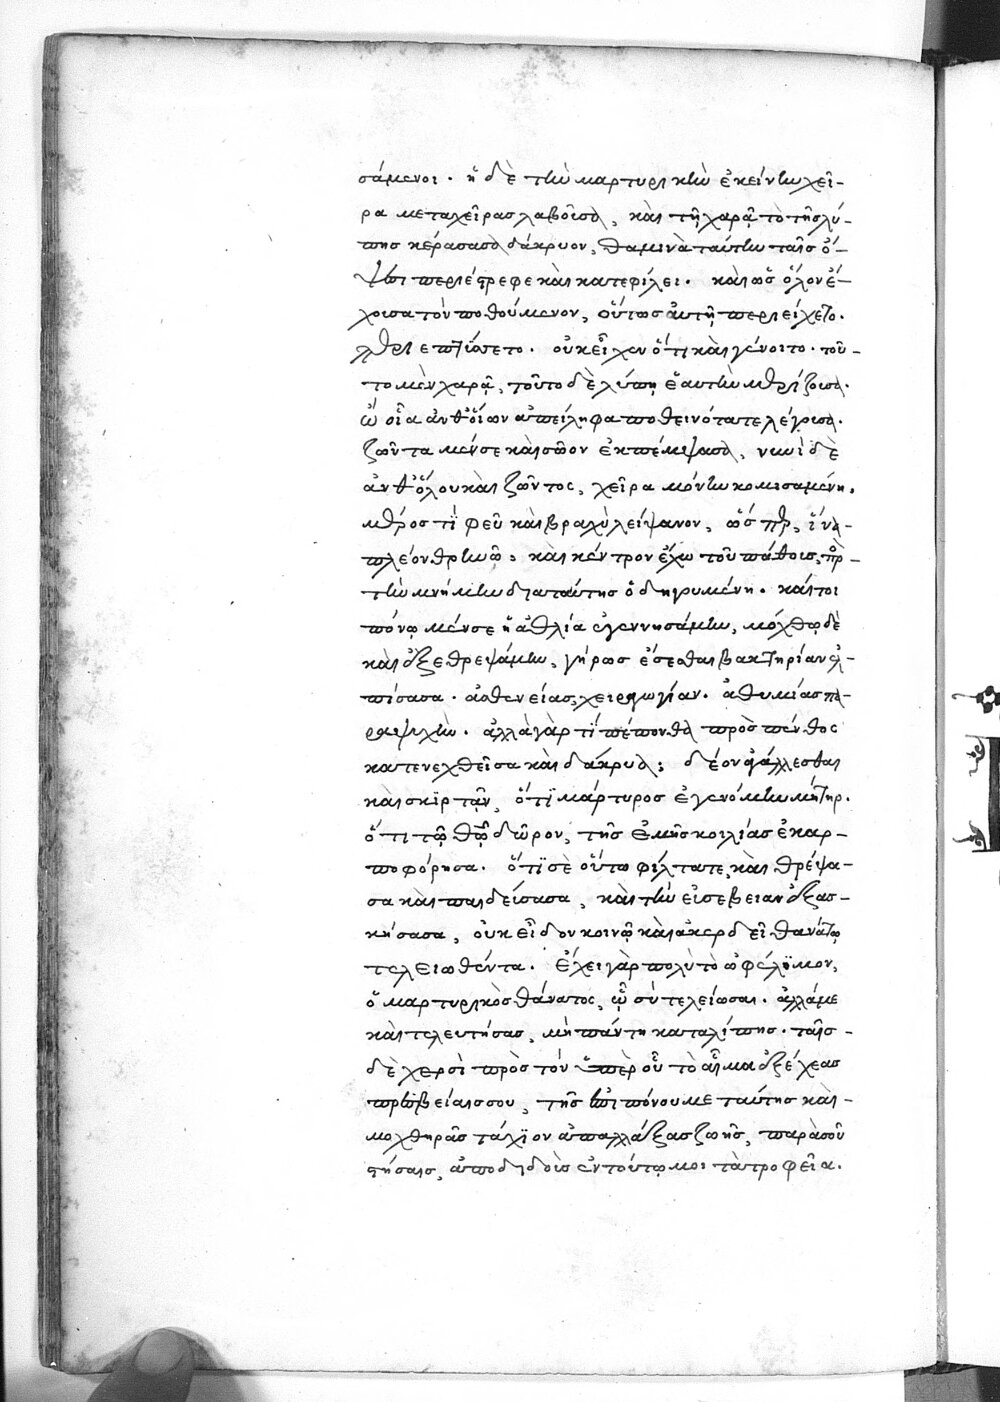 σάμενοι. ἡ δὲ τὴν μαρτυρικὴν ἐκείνην χεῖ-
ρα μεταχεῖρας λαβοῦσα, καὶ τῇ χαρᾷ τὸ τῆς λύ-
πης κεράσασα δάκρυον, θαμινὰ ταύτην ταῖς ὄ-
ψεσι περιέστρεφε καὶ κατεφίλει. καὶ ὡς ὅλον ἔ-
χουσα τὸν ποθούμενον, οὕτως αὐτῇ περιείχετο.
περιεπτύσσετο. οὐκ εἶχεν ὅτι καὶ γένοιτο. τοῦ-
το μὲν χαρᾷ, τοῦτο δὲ λύπῃ ἑαυτὴν μερίζουσα.
ὢ οἷα ἀνθοἵων ἀπείληφα ποθεινότατε λέγουσα.
ζῶντα μέν σε καὶ σῶον ἐκπέμψασα, νυνὶ δὲ
ἀνθ᾽ὅλου καὶ ζῶντος, χεῖρα μόνην κομισαμένη.
μέρος τὶ φεῦ καὶ βραχὺ λείψανον, ὥσπερ, ἵνα
πλέον θρηνῶ, καὶ κέντρον ἔχω τοῦ πάθους, πρ
τὴν μνήμην διαταύτης ὁδηγουμένη. καίτοι
πόνῳ μέν σε ἡ ἀθλία ἐγεννησάμην, μόχθῳ δὲ
καὶ ἐξεθρεψάμην, γήρως ἔσεσθαι βακτηρίαν ἐλ-
πίσασα. ἀσθενείας χειραγωγίαν. ἀθυμίας πα-
ραψυχήν. ἀλλὰ γὰρ τί πέπονθα πρὸς πένθος
κατενεχθεῖσα καὶ δάκρυα; δέον ἀγάλλεσθαι
καὶ σκιρτᾶν, ὅτι μάρτυρος ἐγενόμην μήτηρ.
ὅτι τῷ θῷ δῶρον, τῆς ἐμῆς κοιλίας ἐκαρ-
ποφόρησα. ὅτι σὲ οὕτω φίλτατε, καὶ θρέψα-
σα καὶ παιδεύσασα, καὶ τὴν εὐσέβειαν ἐξασ-
κήσασα, οὐκ εἶδον κοινῷ καὶ ἀκερδεῖ θανάτῳ
τελειωθέντα. ἔχει γὰρ πολὺ τὸ ὠφέλιμον,
ὁ μαρτυρικὸς θάνατος, ᾧ σὺ τελείωσαι. ἀλλά με
καὶ τελευτήσας, μὴ πάντη καταλίπης. ταῖς
δὲ χερσὶ πρὸς τὸν ὑπὲρ οὗ τὸ αἷμα ἐξέχεας
πρεσβείαις σου, τῆς ἐπιπόνου με ταύτης καὶ
μοχθηρᾶς τάχιον ἀπαλλάξας ζωῆς, παρὰ σοῦ
στήσαις, ἀποδιδοὺς ἐν τούτῳ μοι τὰ τροφεῖα.